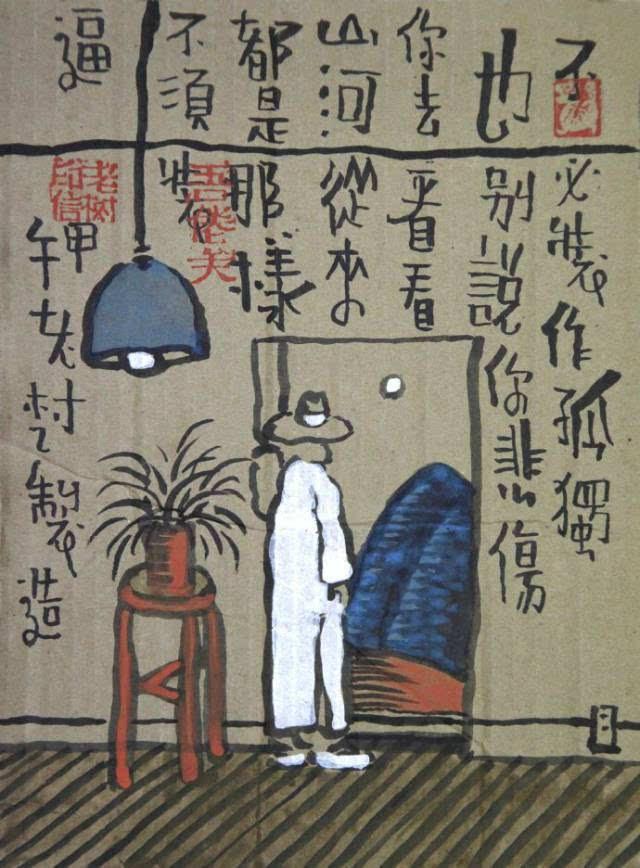 不必裝作孤獨
也別說你悲傷
你去看看
山河從來
都是那樣
不須裝
逼
甲
午老树製造
老树
印信